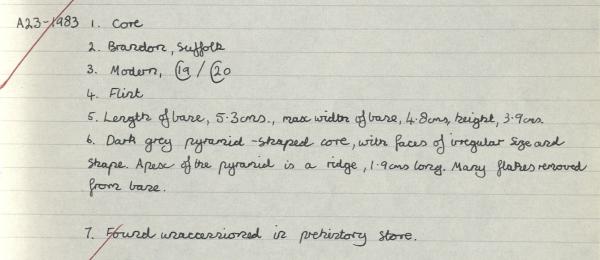 A23-1983 1. Core
2. Brandon, Suffolk
3. Modern, C19 / C20
4. Flint
5. Length of base, 5.3cms., max width of base, 4.8cms, height, 3.9cms.
6. Dark grey pyramid-shaped core, with faces of irregular size and
shape. Apex of the pyramid is a ridge, 1.9cms long. Many flakes removed
from base.
7. Found unaccessioned in prehistory store.